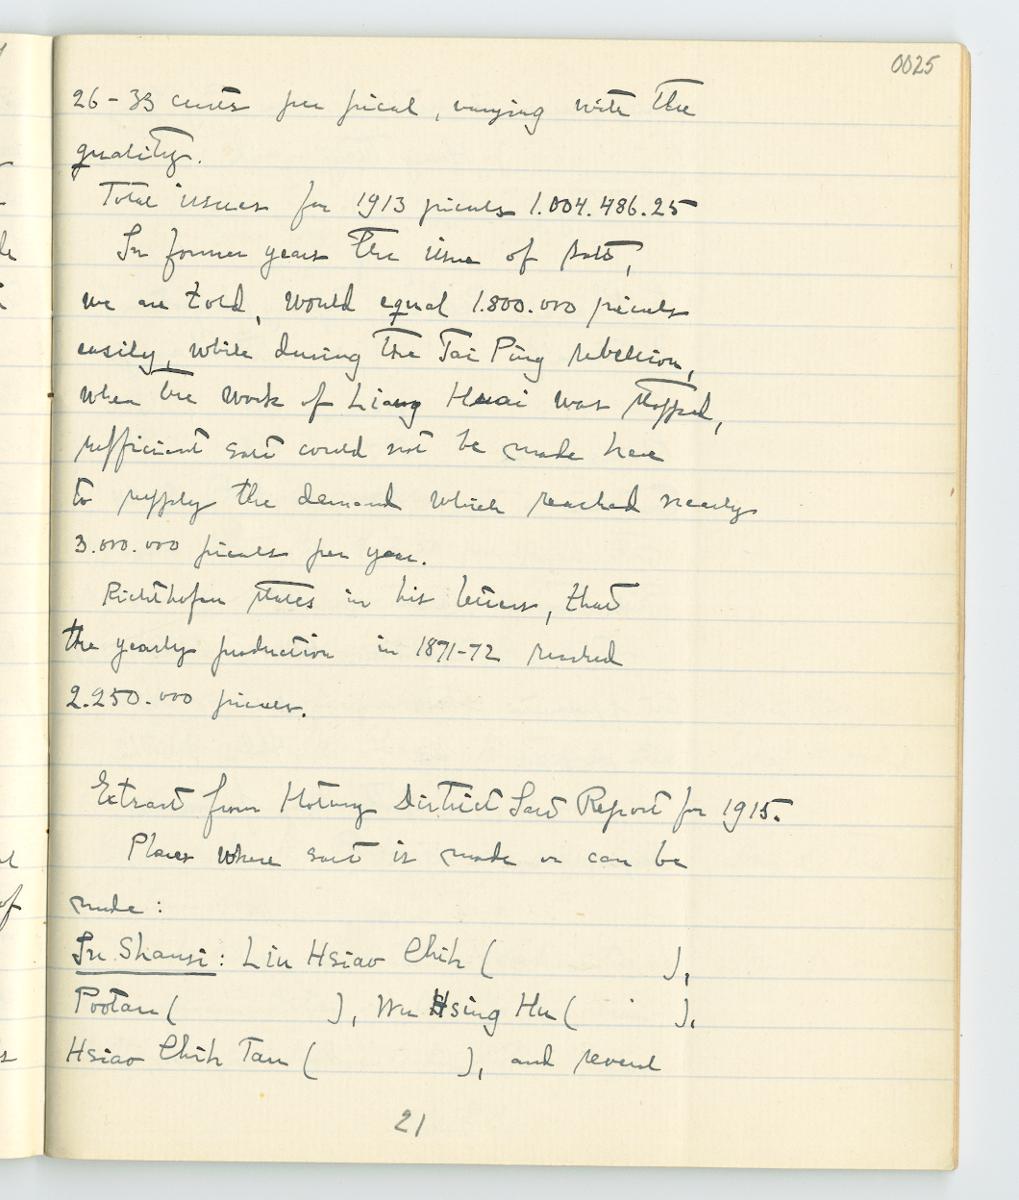 0025
26-33 cents per picul, varying with the
quality.
Total issues for 1913 piculs 1.004.486.25
In former years the issue of salt,
we are told, would equal 1.800.000 piculs
easily, while during the Tai Ping rebellion,
when the work of Liang Huai was stopped,
sufficient salt could not be made here
to supply the demand which reached nearly
3.000.000 piculs per year.
Richthofen states in his letters, that
the yearly production in 1871-72 reached
2.250.000 piculs.
Extract from Hotung District Salt Report for 1915.
Places where salt is made or can be
made:
In Shansi: Liu Hsiao Chih ( ),
Pootan ( ), Wu Hsing Hu ( ),
Hsiao Chih Tan ( ), and several
21